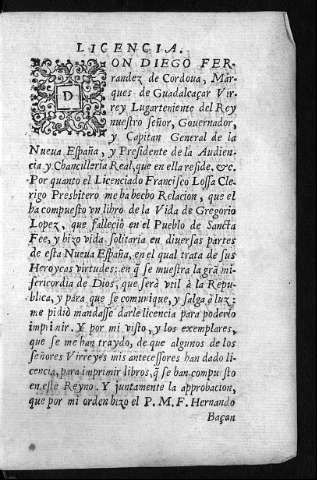 LICENCIA.
DON DIEGO FER
nandez de Cordoua, Mar-
ques de Guadalcaçar Vir
rey Lugarteniente del Rey
nuestro señor, Gouernador,
y Capitan General de la
Nueua España, y Presidente de la Audien-
cia y Chancilleria Real, que en ella reside, &c.
Por quanto el Licenciado Francisco Lossa Cle
rigo Presbitero me ha hecho Relacion, que el
ha compuesto vn libro de la Vida de Gregorio
Lopez, que falleciò en el Pueblo de Sancta
Fee, y hizo vida solitaria en diuersas partes
de esta Nueua España, en el qual trata de sus
Heroycas virtudes: en q̃ se muestra la grã mi-
sericordia de Dios, que serà vtil à la Repu-
blica, y para que se comunique, y salga a luz:
me pidiò mandasse darle licencia para poderlo
imprimir. Y por mi visto, y los exemplares,
que se me han traydo, de que algunos de los
señores Virreyes mis antecessores han dado li-
cencia, para imprimir libros, q̃ se han compuesto
en este Reyno. Y juntamente la approbacion,
que por mi orden hizo el P. M. F. Hernando
Baçan